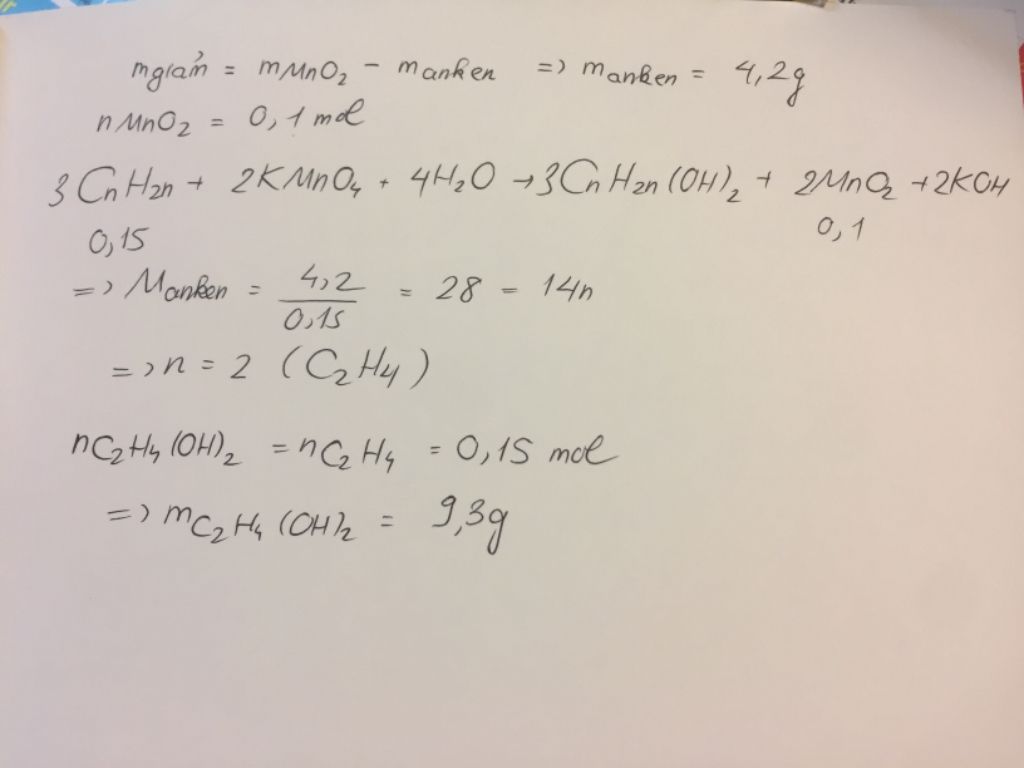 mgiảm = mMnO₂ - manken => manken = 4,2g
nMnO₂ = 0,1 mol
3CnH2n + 2KMnO₄ + 4H₂O → 3CnH2n(OH)₂ + 2MnO₂ + 2KOH
0,15 0,1
=> Manken = 4,2/0,15 = 28 = 14n
=> n = 2 (C₂H₄)
nC₂H₄(OH)₂ = nC₂H₄ = 0,15 mol
=> mC₂H₄(OH)₂ = 9,3g